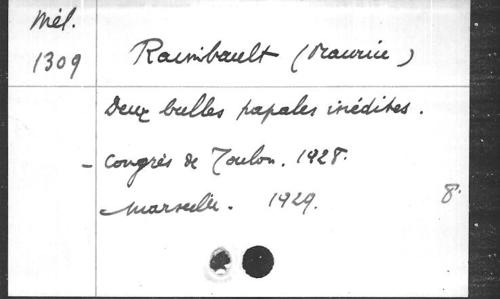 Mél.
1309
Raimbault (Maurice)
Deux bulles papales inédites.
- Congrès de Toulon. 1928.
Marseille. 1929. 8°